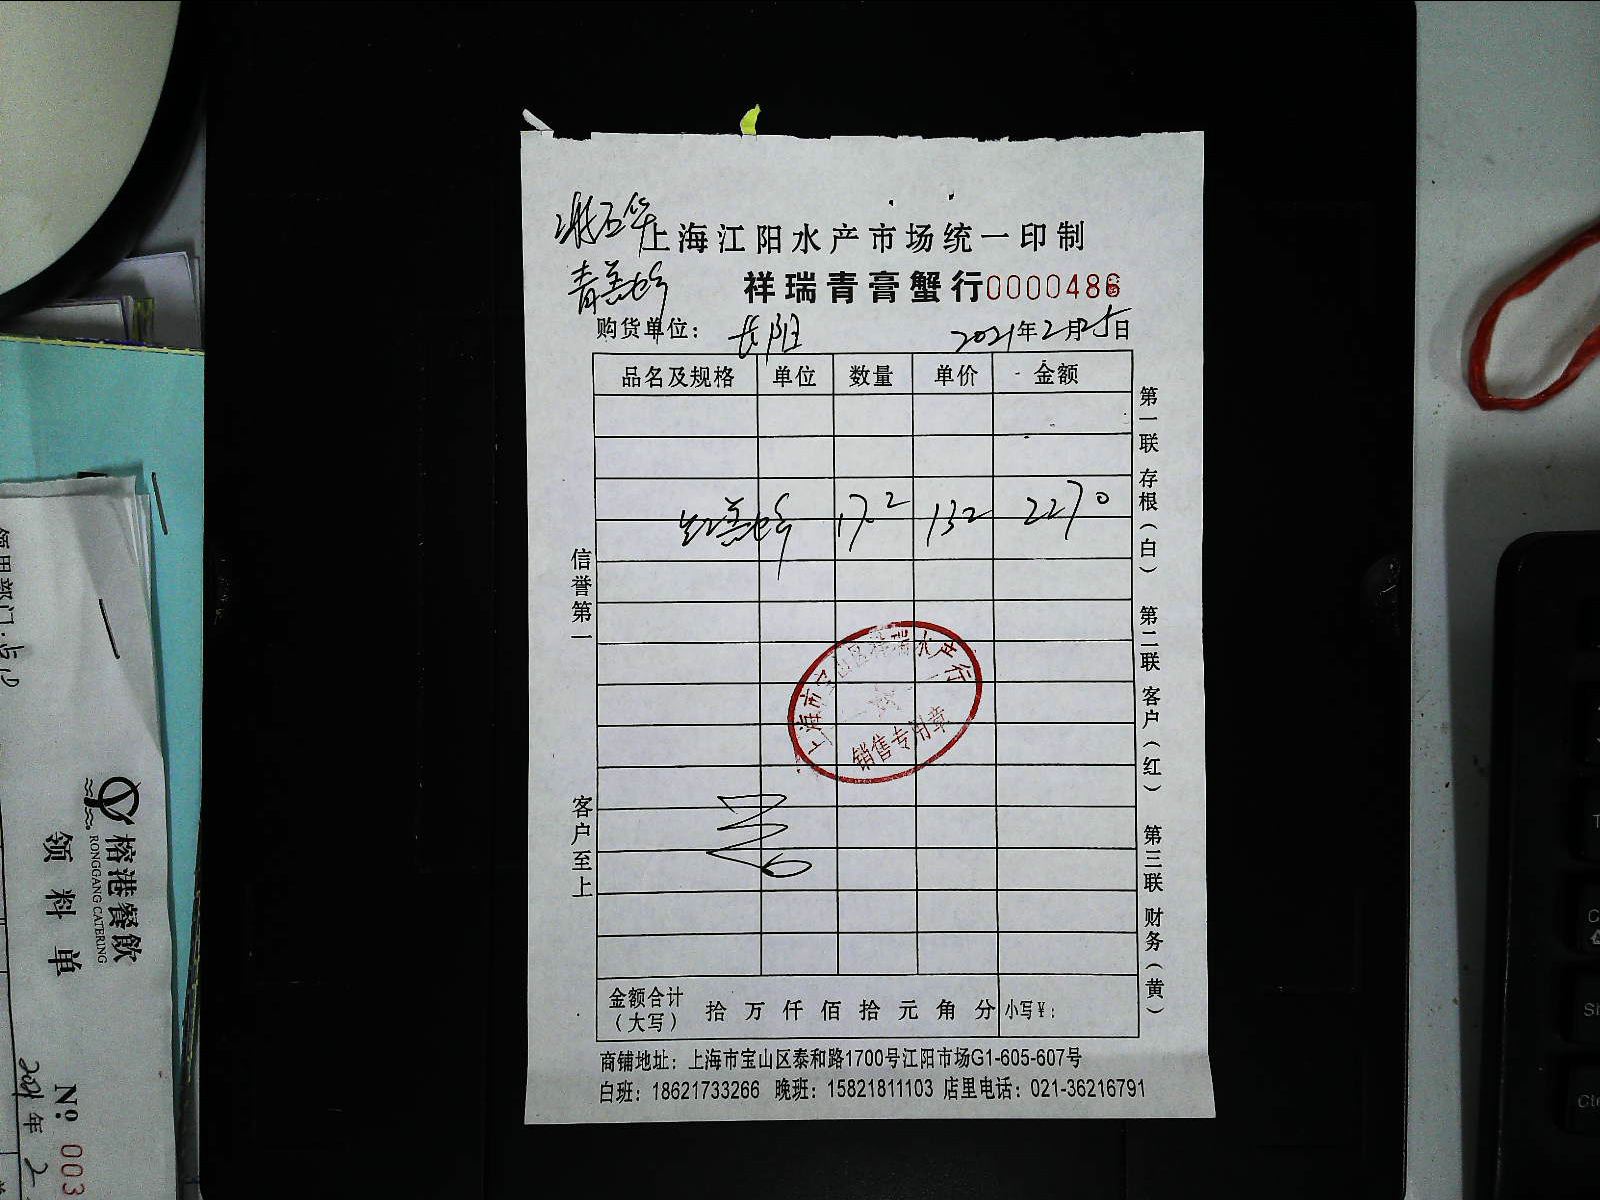 上海江阳水产市场统一印制
青羔蟹
祥瑞青膏蟹行0000486
购货单位： 长阳 2021年2月25日
品名及规格 单位 数量 单价 金额
红羔蟹 17.2 132 2270
信誉第一
客户至上
第一联 存根（白） 第二联 客户（红） 第三联 财务（黄）
上海市宝山区祥瑞水产行
销售专用章
金额合计（大写） 拾 万 仟 佰 拾 元 角 分 小写¥：
商铺地址：上海市宝山区泰和路1700号江阳市场G1-605-607号
白班：18621733266 晚班：15821811103 店里电话：021-36216791
榕港餐飲
RONGGANG CATERING
领料单
Nº 003
2021年2